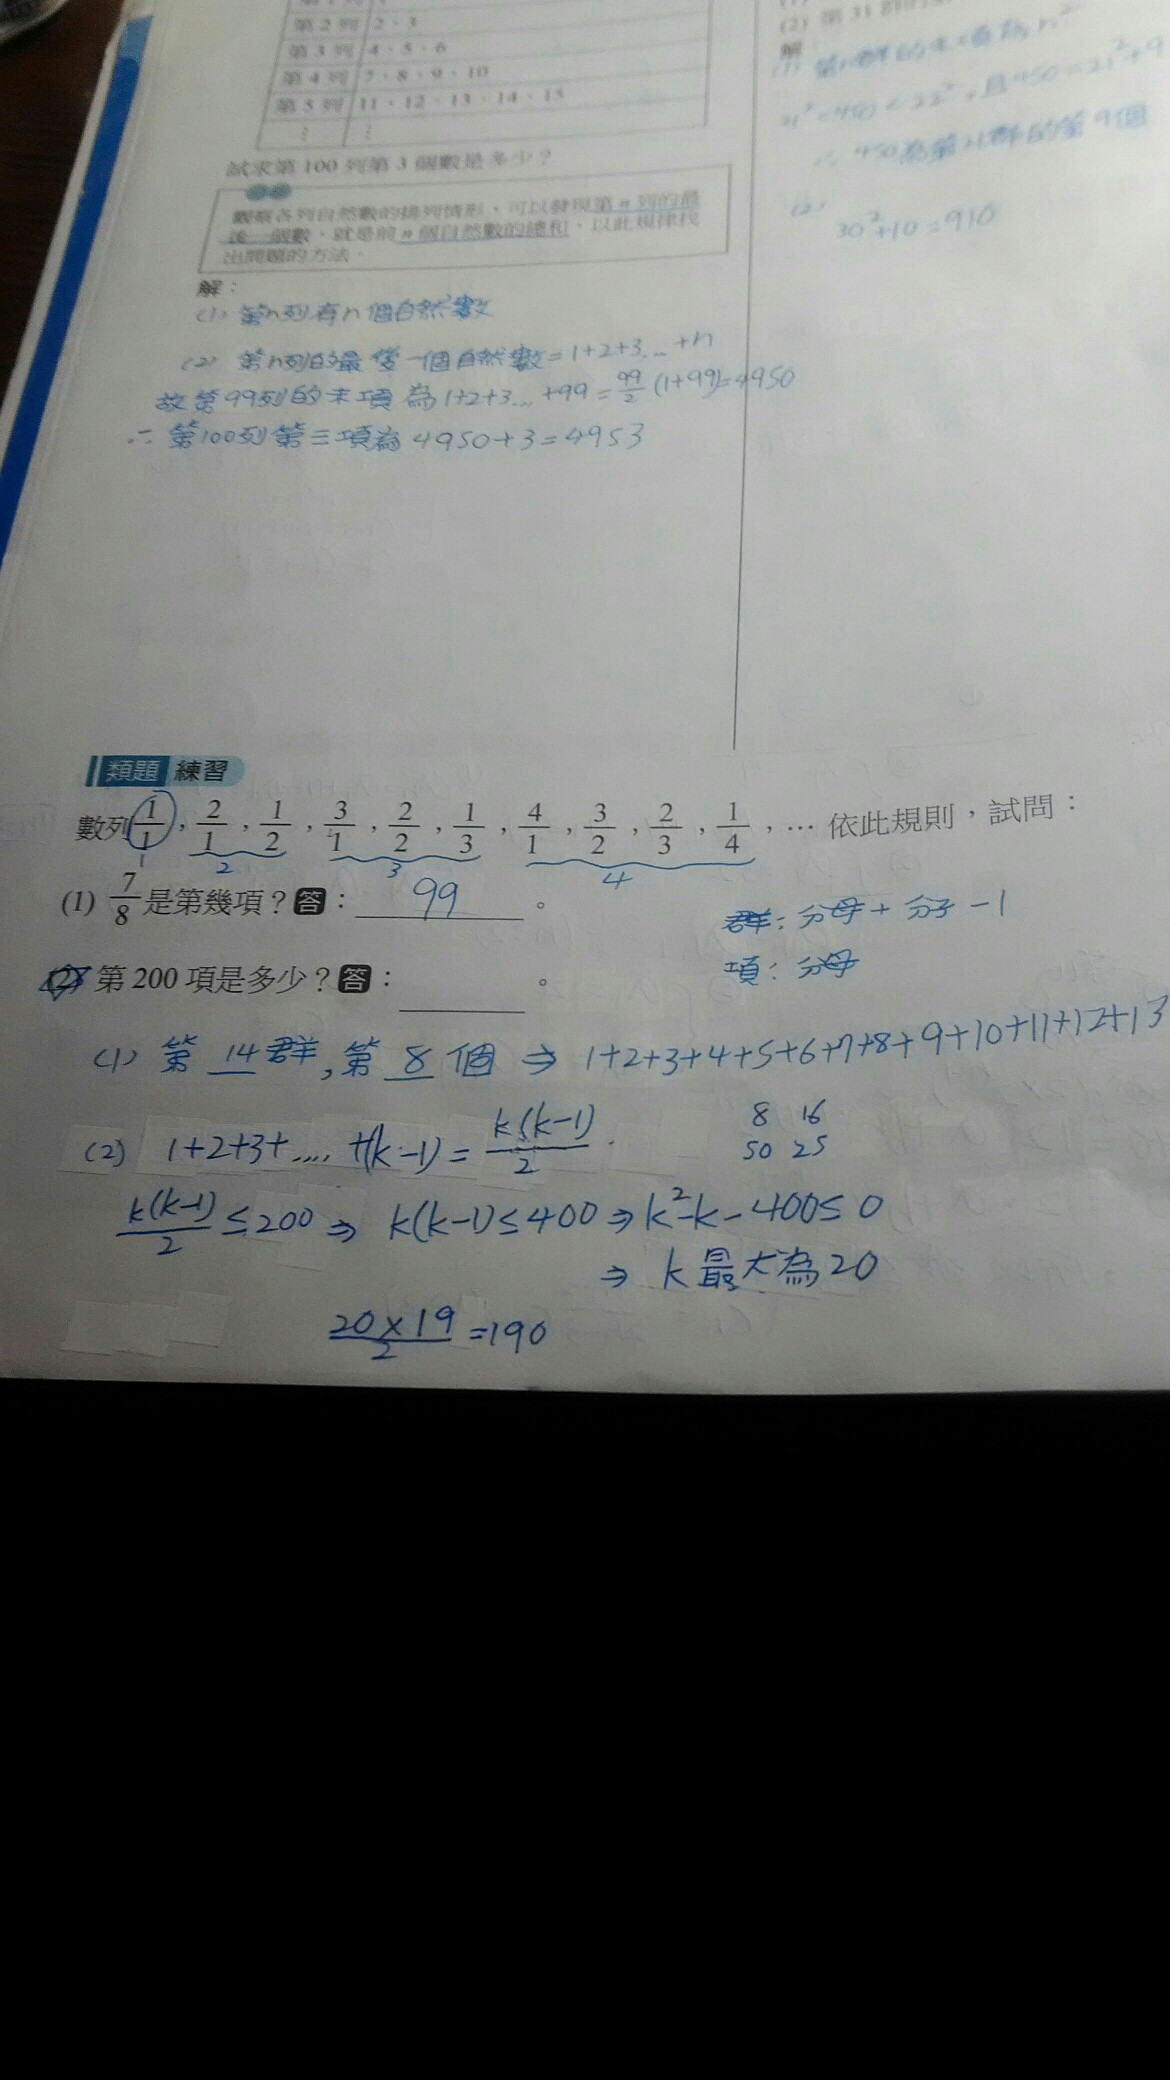 第 1 列 1
第 2 列 2、3
第 3 列 4、5、6
第 4 列 7、8、9、10
第 5 列 11、12、13、14、15
⋮ ⋮
試求第 100 列第 3 個數是多少？
觀察各列自然數的排列情形，可以發現第 n 列的最
後一個數，就是前 n 個自然數的總和，以此規律找
出問題的方法。
解：
(1) 第n列有n個自然數
(2) 第n列的最後一個自然數=1+2+3...+n
故第99列的末項為1+2+3...+99=99/2(1+99)=4950
∴第100列第三項為4950+3=4953
(2) 第 31 群的第
解
(1) 第n群的末項為n²
21²<450<22²，且450=21²+9
∴ 450為第 群的第9個
(2)
30²+10=910
類題 練習
數列 1/1，2/1，1/2，3/1，2/2，1/3，4/1，3/2，2/3，1/4，… 依此規則，試問：
1 2 3 4
(1) 7/8 是第幾項？答：99。
群：分母+分子-1
項：分母
(2) 第 200 項是多少？答：。
(1) 第 14 群，第 8 個 ⇒ 1+2+3+4+5+6+7+8+9+10+11+12+13
(2) 1+2+3+....+(k-1)=k(k-1)/2
8 16
50 25
k(k-1)/2≤200⇒ k(k-1)≤400⇒k²-k-400≤0
⇒ k最大為20
20×19/2=190